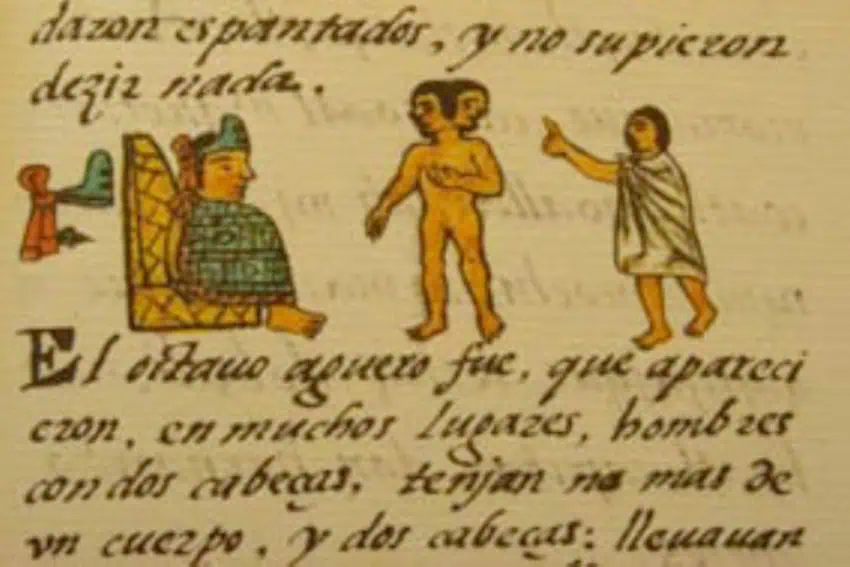 daron espantados, y no supieron
dezir nada.
El octauo aguero fue, que apareci
eron, en muchos lugares, hombres
con dos cabeças, tenjan no mas de
vn cuerpo, y dos cabeças: lleuauan